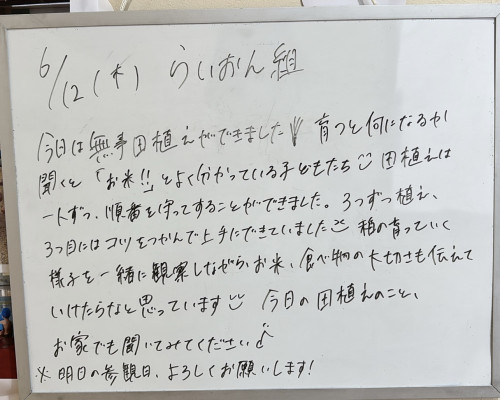 6/12(木) らいおん組
今日は無事田植えができました 育つと何になるか
聞くと「お米!!」とよく分かっている子どもたち 田植えは
一人ずつ、順番を守ってすることができました。3つずつ植え、
3つ目にはコツをつかんで上手にできていました 稲の育っていく
様子を一緒に観察しながらお米、食べ物の大切さも伝えて
いけたらなと思っています 今日の田植えのこと、
お家でも聞いてみてください♪
※明日の参観日、よろしくお願いします!